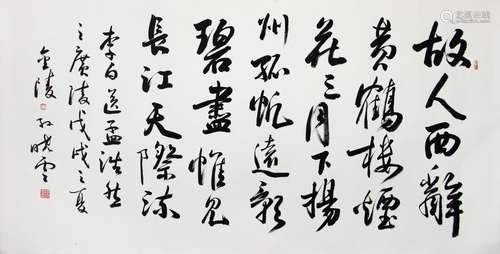 故人西辭
黄鶴樓煙
花三月下揚
州孤帆遠影
碧盡惟見
長江天際流
李白送孟浩然
之廣陵戊戌之夏
金陵孙晓云